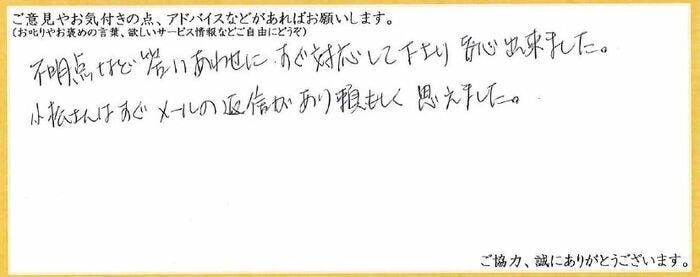 ご意見やお気付きの点、アドバイスなどがあればお願いします。
(お叱りやお褒めの言葉、欲しいサービス情報などご自由にどうぞ)
不明点など 答いあわせに すぐ対応して下さり 安心出来ました。
小松さんはすぐ メールの返信があり頼もしく 思えました。
ご協力、誠にありがとうございます。